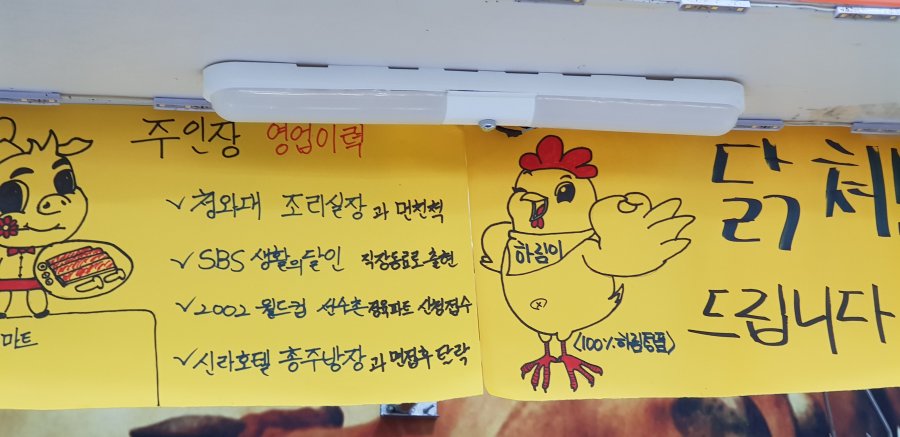 주인장 영업이력
✓ 청와대 조리실장과 먼친척
✓ SBS 생활의달인 직장동료로 출현
✓ 2002 월드컵 선수촌 정육파트 신청접수
✓ 신라호텔 총주방장과 면접후 탈락
마트
하림이
<100% 하림통닭>
닭
드립니다